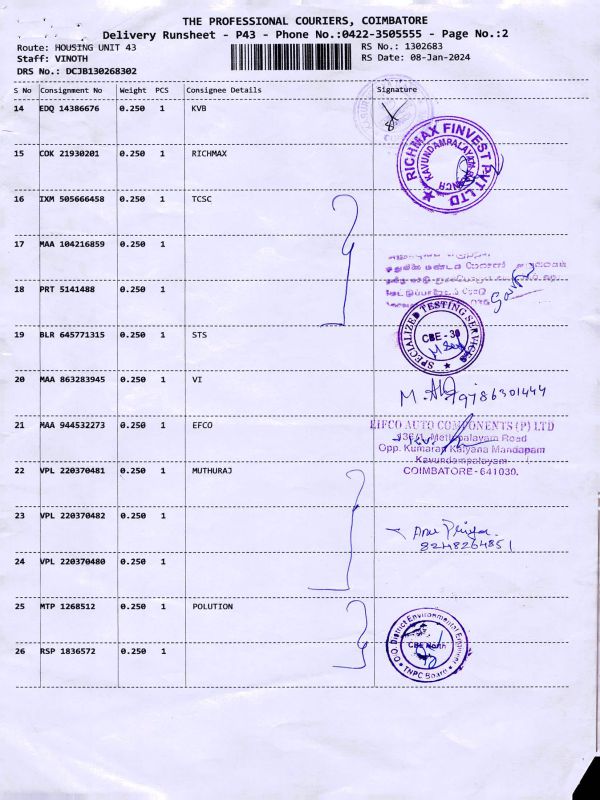 THE PROFESSIONAL COURIERS, COIMBATORE
Delivery Runsheet - P43 - Phone No.:0422-3505555 - Page No.:2
Route: HOUSING UNIT 43
RS No.: 1302683
Staff: VINOTH
RS Date: 08-Jan-2024
DRS No.: DCJB130268302
S No Consignment No Weight PCS Consignee Details Signature
14 EDQ 14386676 0.250 1 KVB
15 COK 21930201 0.250 1 RICHMAX
RICHMAX FINVEST PVT LTD
KAVUNDAMPALAYAM BRANCH
16 IXM 505666458 0.250 1 TCSC
17 MAA 104216859 0.250 1
18 PRT 5141488 0.250 1
19 BLR 645771315 0.250 1 STS
SPECIALIZED TESTING SERVICES
CBE - 30
20 MAA 863283945 0.250 1 VI
9786301444
21 MAA 944532273 0.250 1 EFCO
EIFCO AUTO COMPONENTS (P) LTD
Mettupalayam Road
Opp. Kumaran Kalyana Mandapam
Kavundampalayam
COIMBATORE - 641030.
22 VPL 220370481 0.250 1 MUTHURAJ
23 VPL 220370482 0.250 1
8248264851
24 VPL 220370480 0.250 1
25 MTP 1268512 0.250 1 POLUTION
26 RSP 1836572 0.250 1
O/O. District Environmental Engineer
CBE North
TNPC Board